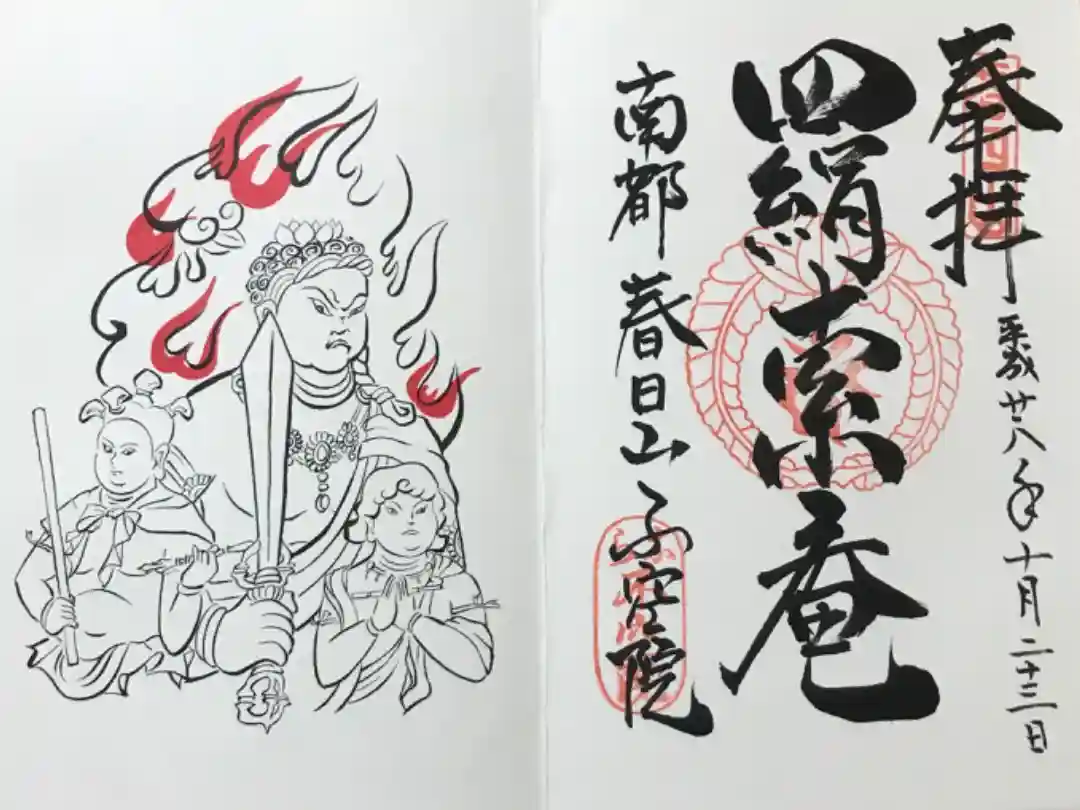 奉拝 平成廿八年十月二十三日
羂索庵
南都 春日山 不空院